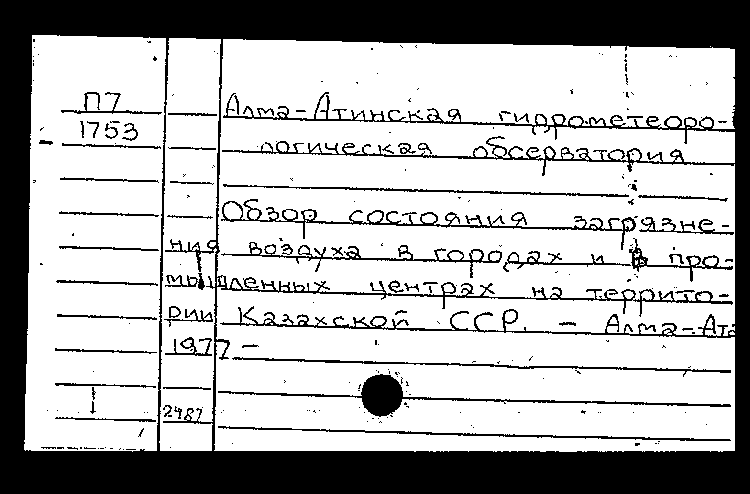 П7
1753
Алма-Атинская гидрометеоро-
логическая обсерватория
Обзор состояния загрязне-
ния воздуха в городах и в про-
мышленных центрах на террито-
рии Казахской ССР. - Алма-Ата
1977-
2487